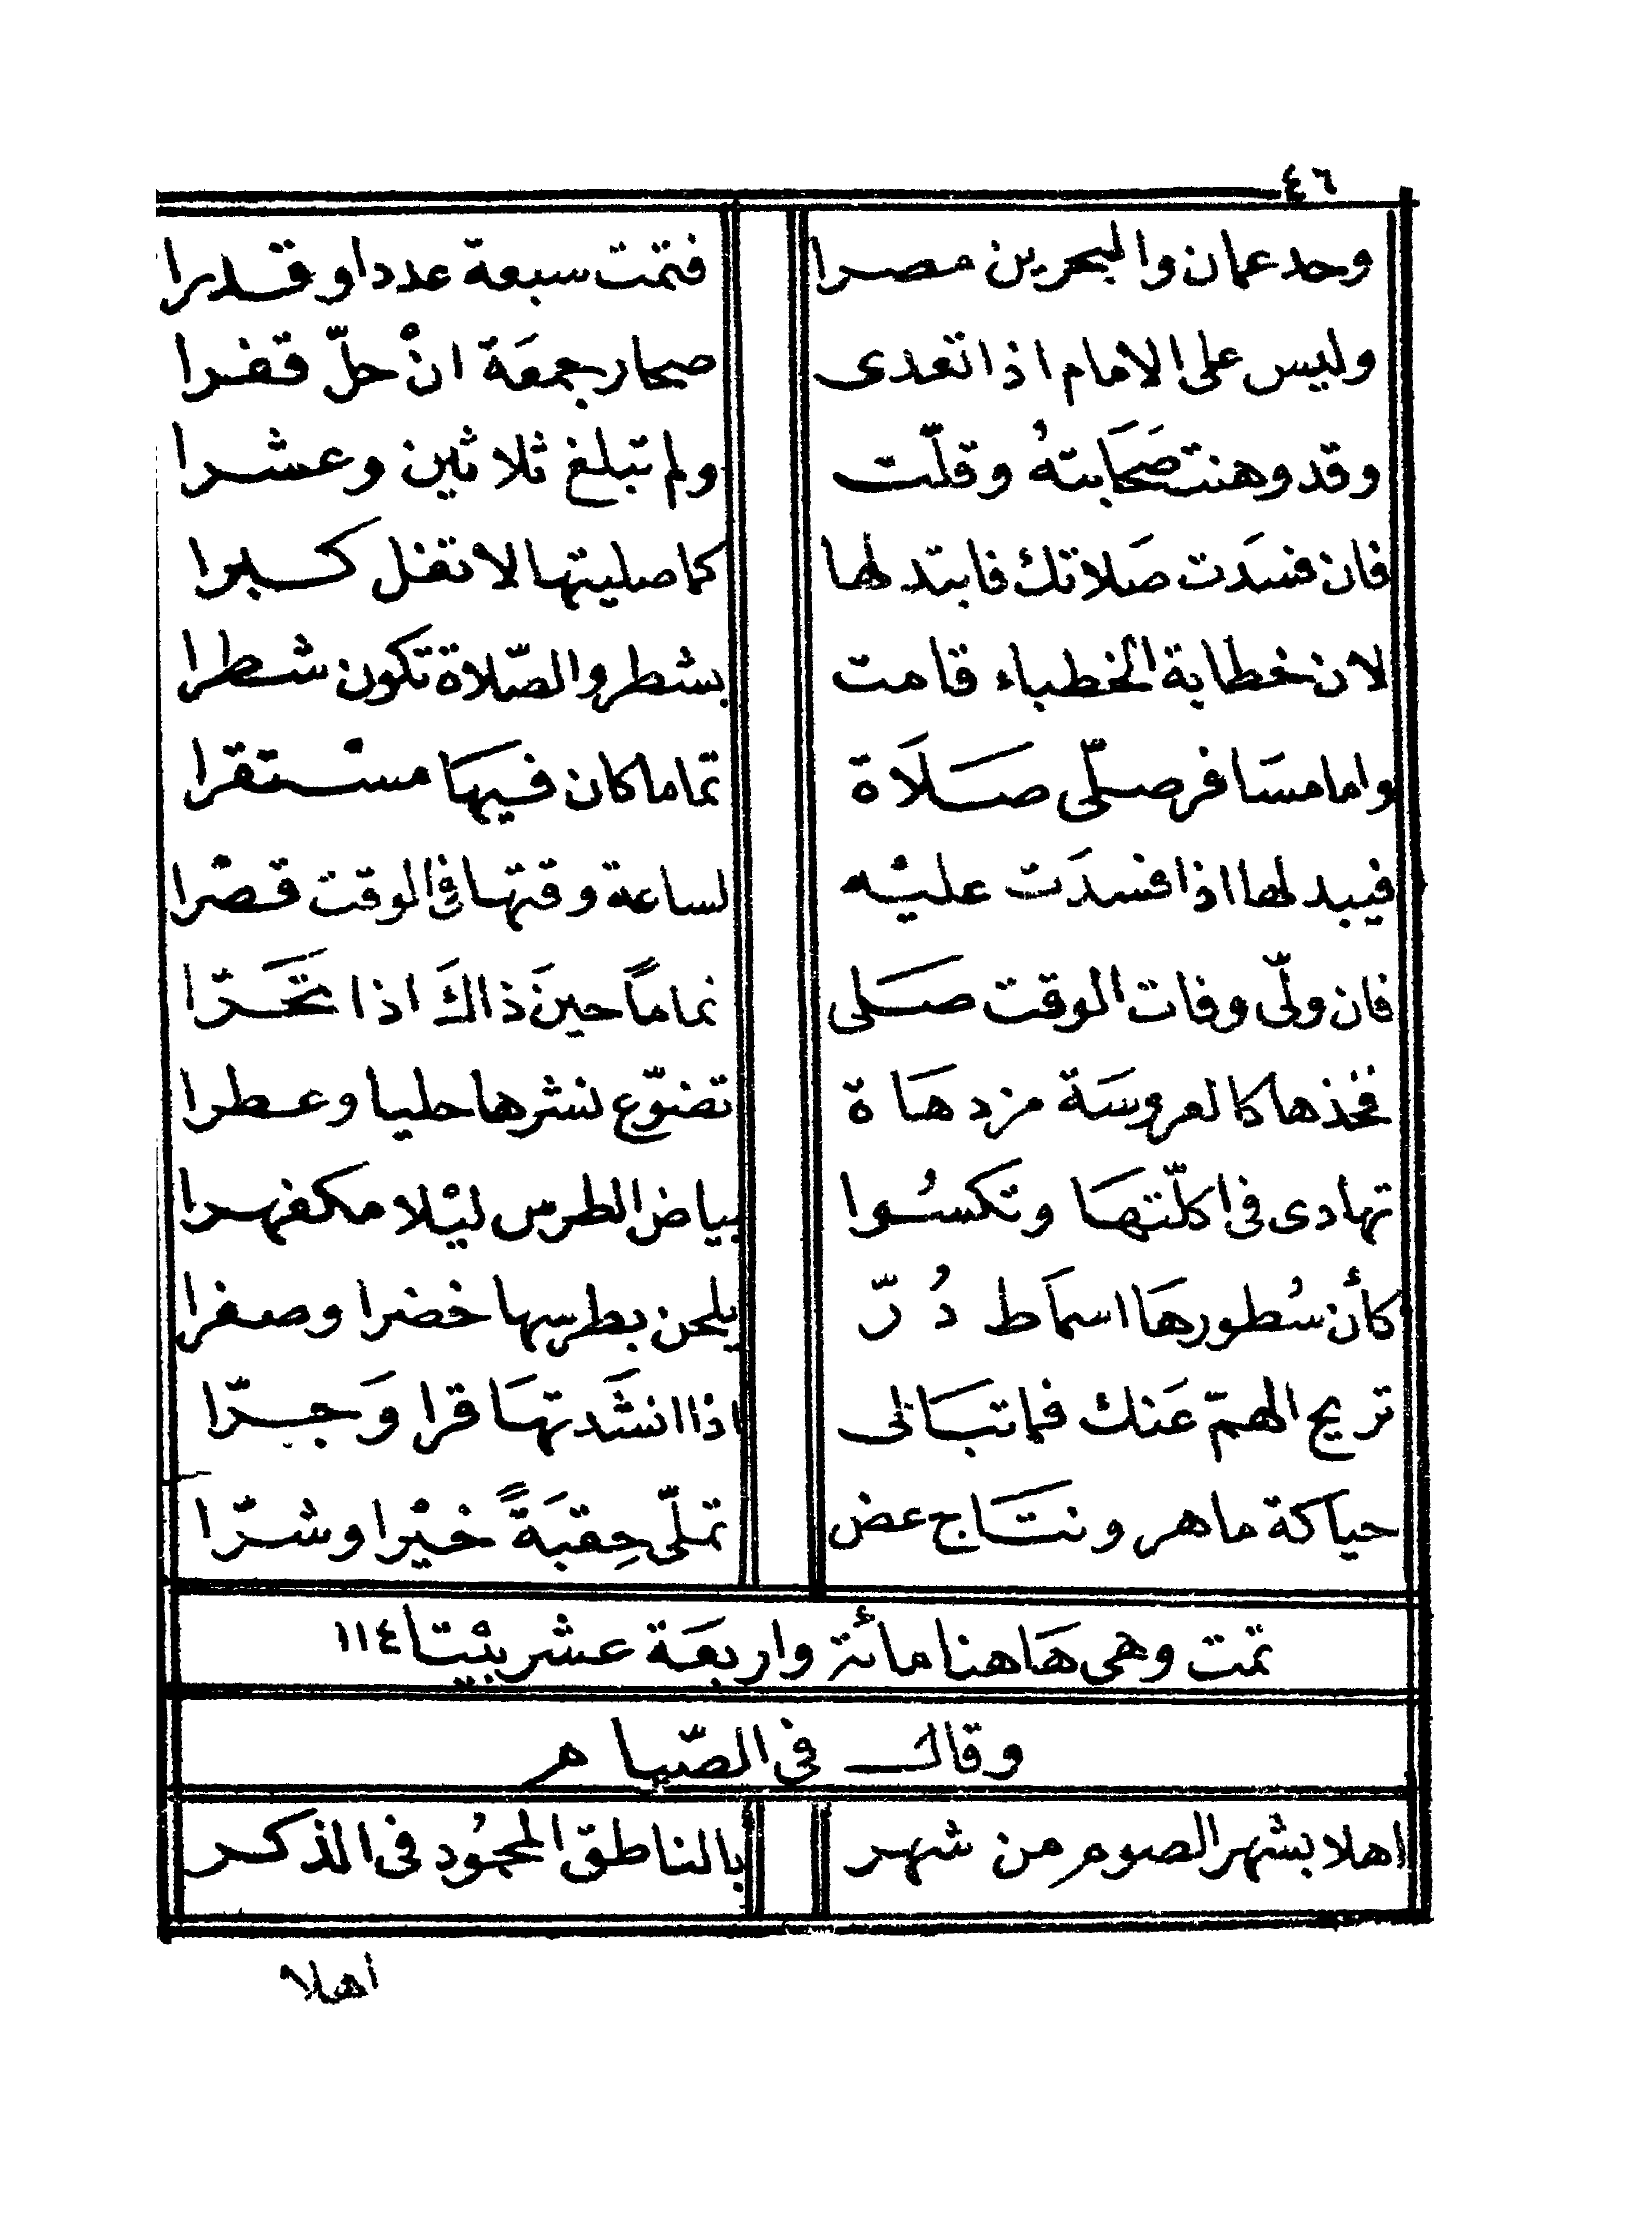 ٤٦
وحد عمان والبحرين مصرا فتمت سبعة عددا وقدرا
وليس على الامام اذا تعدى صحار جمعة انْ حلّ قفرا
وقد وهنت صَحَابتهُ وقلّت ولم تبلغ ثلاثين وعشرا
فان فسدَت صَلاتك فابتد لها كما صليتها لا تقل كبرا
لان خطابة الخطباء قامت بشطر والصّلاة تكون شطرا
واما مسَافر صلّى صَلَاة تماما كان فيهَا مسْتقرا
فيبد لها اذا فسدَت عليْه لساعة وقتها في الوقت قصْرا
فان ولّى وفات الوقت صَلى تماماً حينَ ذاكَ اذا تحَرّا
فخذها كالعروسَة مزدهَاة تضوّع نشرها حليا وعطرا
تهادى في اكلّتهَا وتكسُوا بياض الطرس ليْلا مكفهرا
كأن سُطورهَا اسمَاط دُرّ يلحن بطرسها خضرا وصفرا
تريح الهمّ عَنك فما تبَالى اذا انشَدتهَا قرا وَجرّا
حياكة ماهر ونتَاج عض تملّى حِقبَةً خيْرا وشرّا
تمت وهي هَاهنا مائة واربعَة عشر بيْتا ١١٤
وقال في الصّيام
اهلا بشهر الصوم من شهر بالناطق المحمُود في الذكر
اهلا